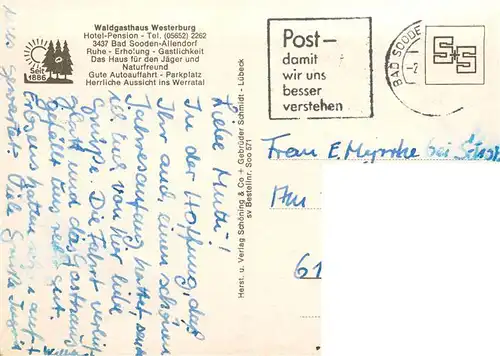 Waldgasthaus Westerburg
Hotel-Pension - Tel. (05652) 2262
3437 Bad Sooden-Allendorf
Ruhe - Erholung - Gastlichkeit
Das Haus für den Jäger und
Naturfreund
Gute Autoauffahrt - Parkplatz
Herrliche Aussicht ins Werratal
Seit
1886
Post—
damit
wir uns
besser
verstehen
BAD SOODE
S+S
Frau E. Myrrhe bei
An
61
Herst. u. Verlag Schöning & Co + Gebrüder Schmidt - Lübeck
sv Bestellnr. Soo 571
Liebe Mutti!
In der Hoffnung, daß
Ihr auch einen schönen
Jahresanfang hattet, senden
wir Euch von hier liebe
Grüße. Die Fahrt verlief
glatt und das Gasthaus
gefällt uns recht gut.
hatten
gewartet. Viele Grüße